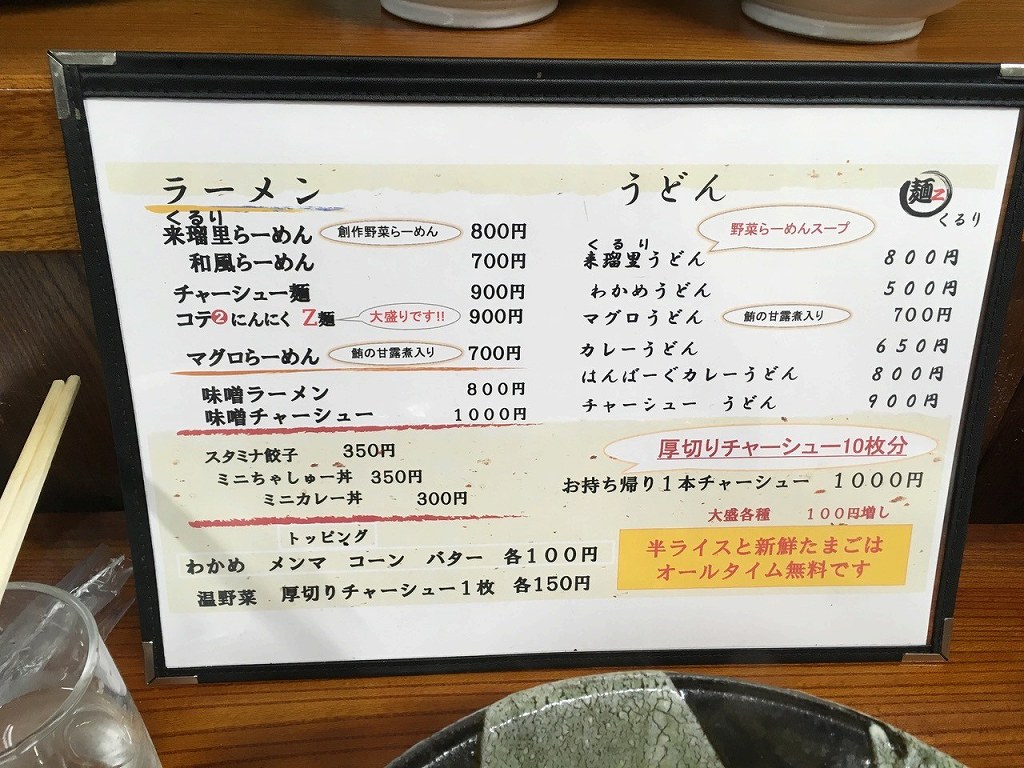 ラーメン
くるり
来瑠里らーめん 創作野菜らーめん 800円
和風らーめん 700円
チャーシュー麺 900円
コテ②にんにく Z麺 大盛りです!! 900円
マグロらーめん 鮪の甘露煮入り 700円
味噌ラーメン 800円
味噌チャーシュー 1000円
スタミナ餃子 350円
ミニちゃしゅー丼 350円
ミニカレー丼 300円
トッピング
わかめ メンマ コーン バター 各100円
温野菜 厚切りチャーシュー1枚 各150円
うどん
麺Z
くるり
野菜らーめんスープ
くるり
来瑠里うどん 800円
わかめうどん 500円
マグロうどん 鮪の甘露煮入り 700円
カレーうどん 650円
はんばーぐカレーうどん 800円
チャーシュー うどん 900円
厚切りチャーシュー10枚分
お持ち帰り1本チャーシュー 1000円
大盛各種 100円増し
半ライスと新鮮たまごは
オールタイム無料です